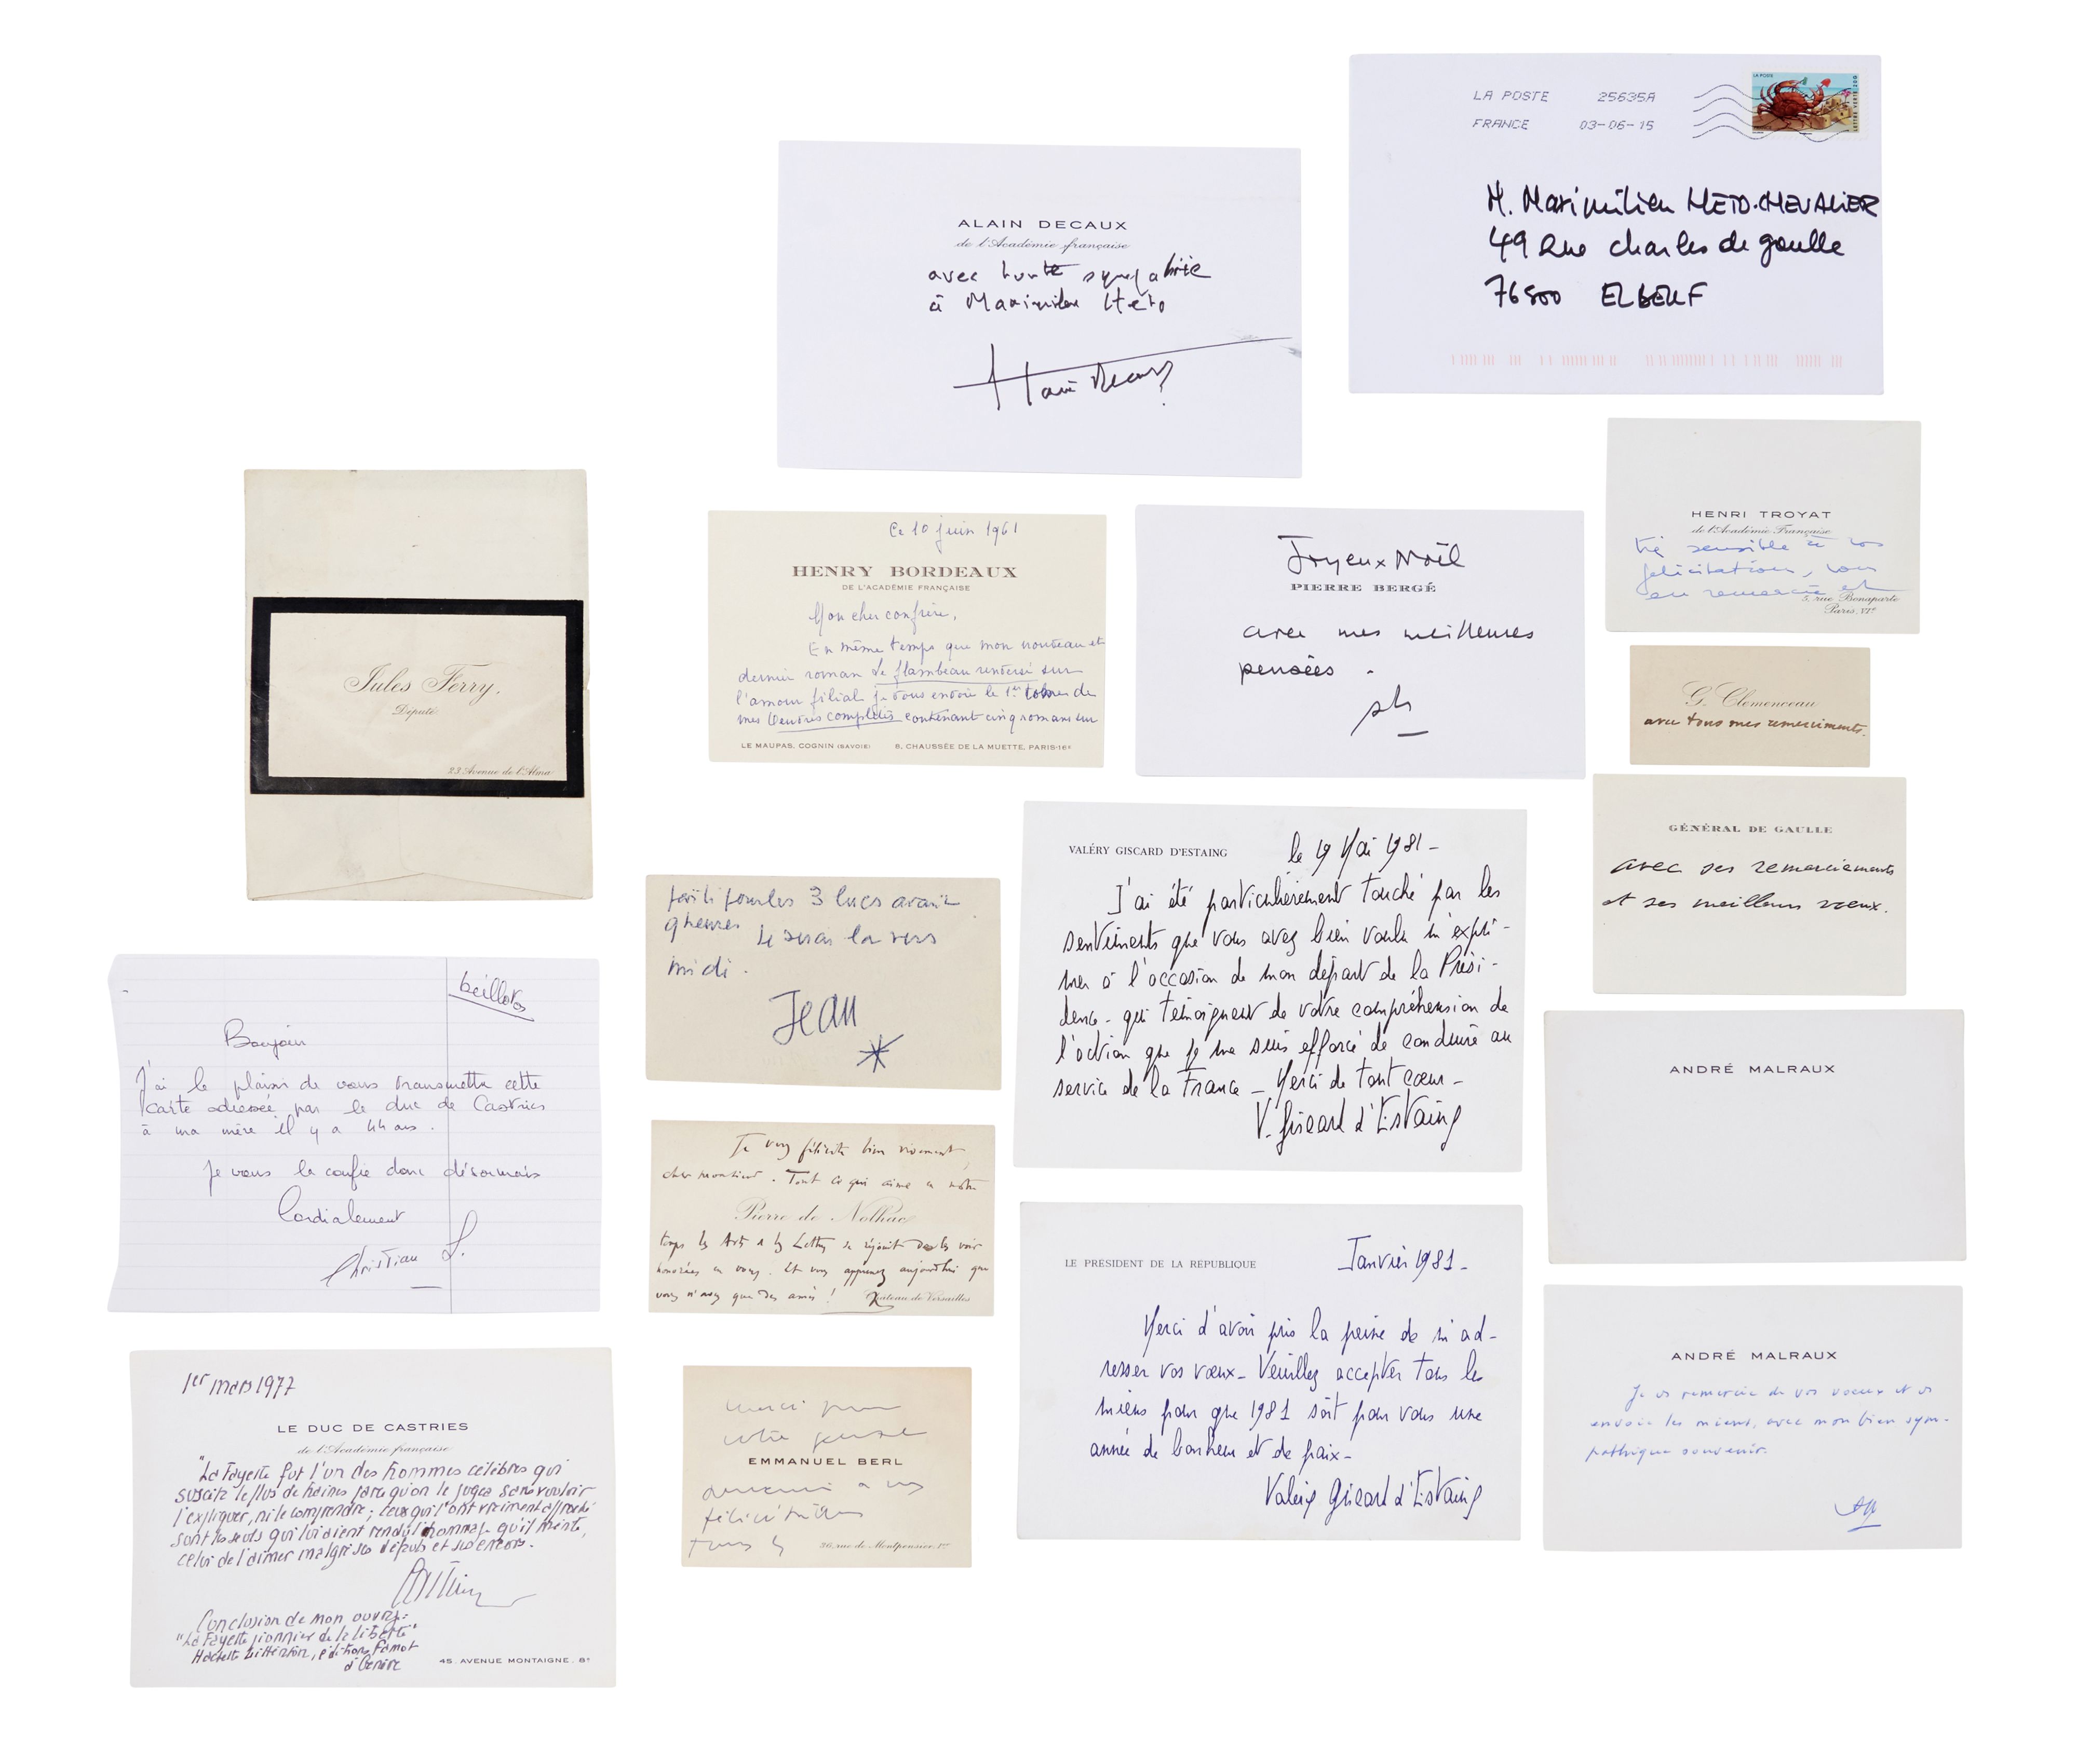 LA POSTE 25635A
FRANCE 03-06-15
LA POSTE
LETTRE VERTE 20G
M. Maximilien HETO-CHEVALIER
49 Rue charles de gaulle
76500 ELBEUF
ALAIN DECAUX
de l'Académie française
avec toute sympathie
à Maximilien Héto
Alain Decaux
HENRI TROYAT
de l'Académie Française
Très sensible à vos
félicitations, vous
en remercie et
5, rue Bonaparte
Paris, VIe
Jules Ferry,
Député
23 Avenue de l'Alma
Ce 10 juin 1961
HENRY BORDEAUX
DE L'ACADÉMIE FRANÇAISE
Mon cher confrère,
En même temps que mon nouveau et
dernier roman Le flambeau renversé sur
l'amour filial je vous envoie le 1er tome de
mes Oeuvres complètes contenant cinq romans sur
LE MAUPAS, COGNIN (SAVOIE) 8, CHAUSSÉE DE LA MUETTE, PARIS-16e
Joyeux Noël
PIERRE BERGÉ
avec mes meilleures
pensées -
G. Clemenceau
avec tous mes remerciments.
GÉNÉRAL DE GAULLE
avec ses remerciements
et ses meilleurs vœux.
VALÉRY GISCARD D'ESTAING
le 19 Mai 1981 -
J'ai été particulièrement touché par les
sentiments que vous avez bien voulu m'expri-
mer à l'occasion de mon départ de la Prési-
dence - qui témoignent de votre compréhension de
l'action que je me suis efforcé de conduire au
service de la France - Merci de tout cœur -
V. Giscard d'Estaing
pour les 3 lues avant
9 heures Je serai la vers
midi.
Jean
Bonjour
J'ai le plaisir de vous transmettre cette
carte adressée par le duc de Castries
à ma mère il y a 44 ans.
Je vous la confie donc désormais
Cordialement
Christian L.
ANDRÉ MALRAUX
Je vous félicite bien vivement,
cher monsieur. Tout ce qui aime en notre
Pierre de Nolhac
temps les Arts et les Lettres se réjouit de les voir
honorées en vous. Et vous apprenez aujourd'hui que
vous n'avez que des amis !
Château de Versailles
LE PRÉSIDENT DE LA RÉPUBLIQUE
Janvier 1981 -
Merci d'avoir pris la peine de m'ad-
resser vos vœux - Veuillez accepter tous les
miens pour que 1981 soit pour vous une
année de bonheur et de paix -
Valéry Giscard d'Estaing
ANDRÉ MALRAUX
Je vs remercie de vos voeux et vs
envoie les miens, avec mon bien sym-
pathique souvenir.
AM
1er mars 1977
LE DUC DE CASTRIES
de l'Académie française
"La Fayette fut l'un des hommes célèbres qui
suscita le plus de haines parce qu'on le jugea sans vouloir
l'expliquer, ni le comprendre; ceux qui l'ont vraiment approché
sont les seuls qui lui aient rendu l'hommage qu'il mérite,
celui de l'aimer malgré ses défauts et ses erreurs.
Castries
Conclusion de mon ouvrage:
"La Fayette pionnier de la liberté"
Hachette Littérature, éditions Famot
à Genève
45, AVENUE MONTAIGNE, 8e
merci pour
votre pensée
EMMANUEL BERL
félicitations
36, rue de Montpensier, 1er